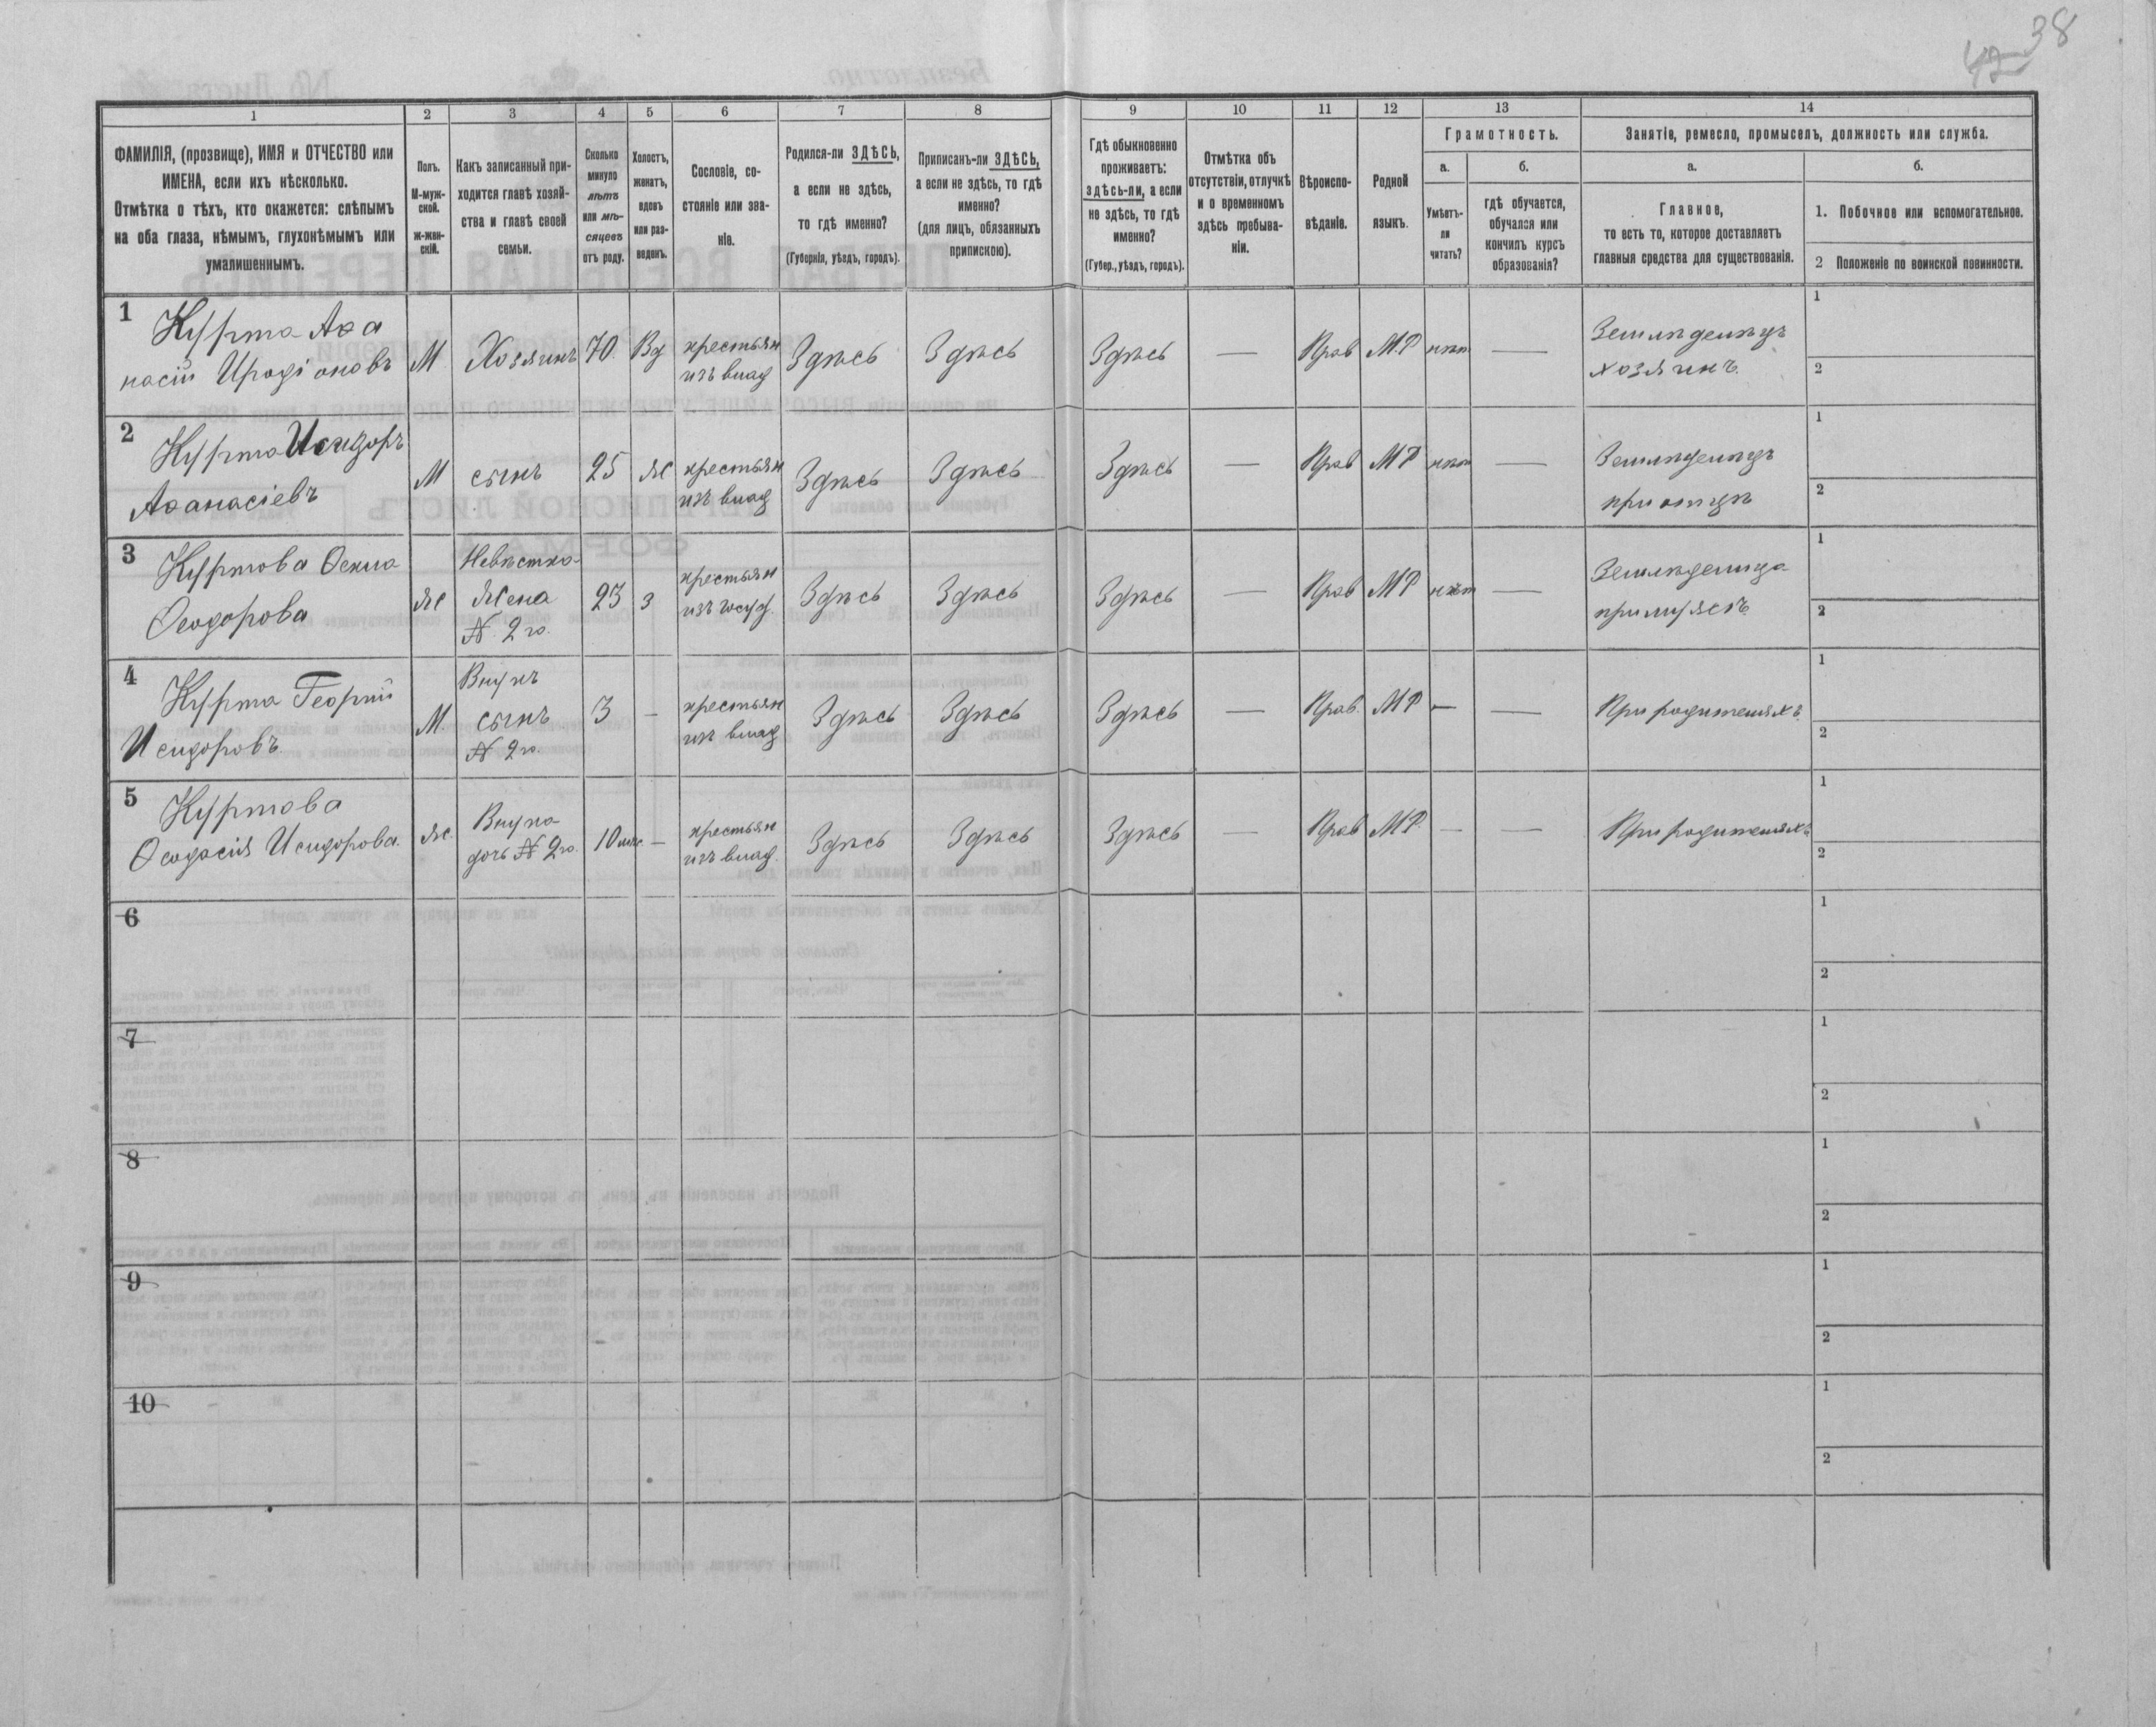 38
42
1 2 3 4 5 6 7 8 9 10 11 12 13 14
ФАМИЛІЯ, (прозвище), ИМЯ и ОТЧЕСТВО или
ИМЕНА, если ихъ нѣсколько.
Отмѣтка о тѣхъ, кто окажется: слѣпымъ
на оба глаза, нѣмымъ, глухонѣмымъ или
умалишеннымъ.
Полъ.
М-муж-
ской.
ж-жен-
скій.
Какъ записанный при-
ходится главѣ хозяй-
ства и главѣ своей
семьи.
Сколько
минуло
лѣтъ
или мѣ-
сяцевъ
отъ роду.
Холостъ,
женатъ,
вдовъ
или раз-
веденъ.
Сословіе, со-
стояніе или зва-
ніе.
Родился-ли ЗДѢСЬ,
а если не здѣсь,
то гдѣ именно?
(Губернія, уѣздъ, городъ).
Приписанъ-ли ЗДѢСЬ,
а если не здѣсь, то гдѣ
именно?
(для лицъ, обязанныхъ
припискою).
Гдѣ обыкновенно
проживаетъ:
здѣсь-ли, а если
не здѣсь, то гдѣ
именно?
(Губер., уѣздъ, городъ).
Отмѣтка объ
отсутствіи, отлучкѣ
и о временномъ
здѣсь пребыва-
ніи.
Вѣроиспо-
вѣданіе.
Родной
языкъ.
Грамотность.
а.
Умѣетъ-
ли
читать?
б.
гдѣ обучается,
обучался или
кончилъ курсъ
образованія?
Занятіе, ремесло, промыселъ, должность или служба.
а.
Главное,
то есть то, которое доставляетъ
главныя средства для существованія.
б.
1. Побочное или вспомогательное.
2 Положеніе по воинской повинности.
1
Курта Аѳа
насій Иродіоновъ
М
Хозяинъ
70.
Вд
крестьян
изъ влад
Здѣсь
Здѣсь
Здѣсь
—
Прав
М.Р
нѣт
—
Земледѣлецъ
хозяинъ.
1
2
2
Курта Исидоръ
Аѳанасіевъ
М
сынъ
25
Ж
крестьян
изъ влад
Здѣсь
Здѣсь
Здѣсь
—
Прав
МР
нѣт
—
Земледѣлецъ
при отцѣ
1
2
3
Куртова
Ѳеодорова
Ж
Невѣстка
Жена
№ 2го.
23
З
крестьян
Здѣсь
Здѣсь
Здѣсь
—
Прав
МР
нѣт
—
при мужѣ
1
2
4
Курта Георгій
Исидоровъ.
М.
Внукъ
сынъ
№ 2го.
3
—
крестьян
изъ влад
Здѣсь
Здѣсь
Здѣсь
—
Прав.
МР
—
—
При родителяхъ.
1
2
5
Куртова
Ѳеодосія Исидорова.
Ж.
Внука
дочь № 2го.
10 мѣс.
—
крестьян
изъ влад.
Здѣсь
Здѣсь
Здѣсь
—
Прав
МР.
—
—
При родителяхъ
1
2
6
1
2
7
1
2
8
1
2
9
1
2
10
1
2